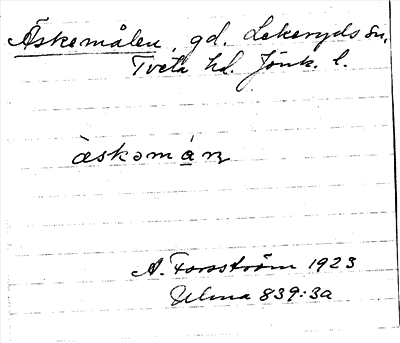 Äskemålen, gd. Lekeryds sn,
Tveta hd. Jönk. l.
äskəmán
A. Forsström 1923
Ulma 839:3a